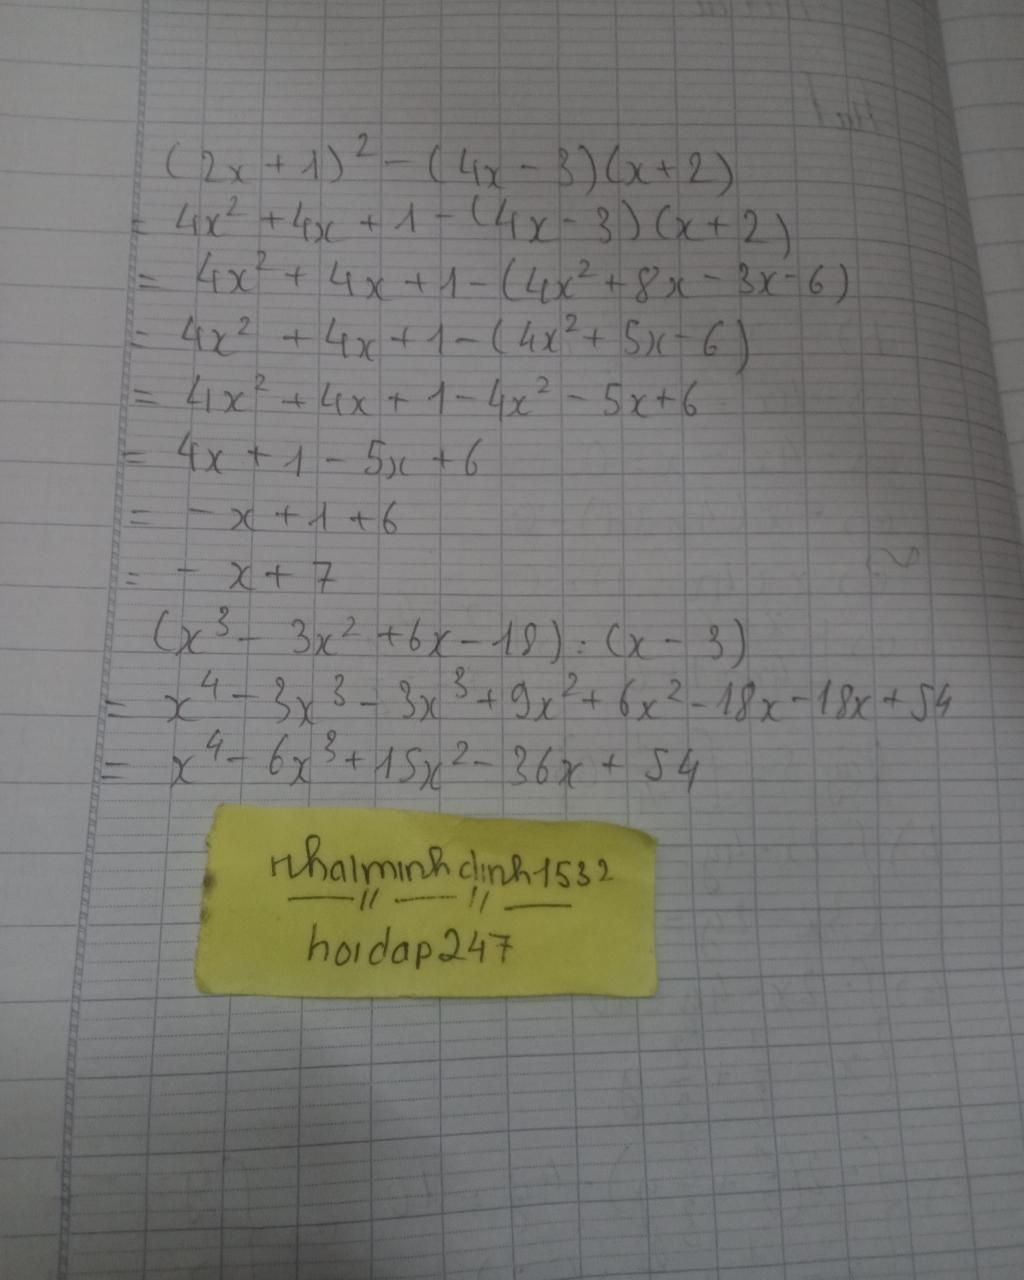 (2x + 1)² - (4x - 3)(x + 2)
= 4x² + 4x + 1 - (4x - 3)(x + 2)
= 4x² + 4x + 1 - (4x² + 8x - 3x - 6)
= 4x² + 4x + 1 - (4x² + 5x - 6)
= 4x² + 4x + 1 - 4x² - 5x + 6
= 4x + 1 - 5x + 6
= - x + 1 + 6
= - x + 7
(x³ - 3x² + 6x - 18) : (x - 3)
= x⁴ - 3x³ - 3x³ + 9x² + 6x² - 18x - 18x + 54
= x⁴ - 6x³ + 15x² - 36x + 54
nhalminhdinh1532
hoidap247